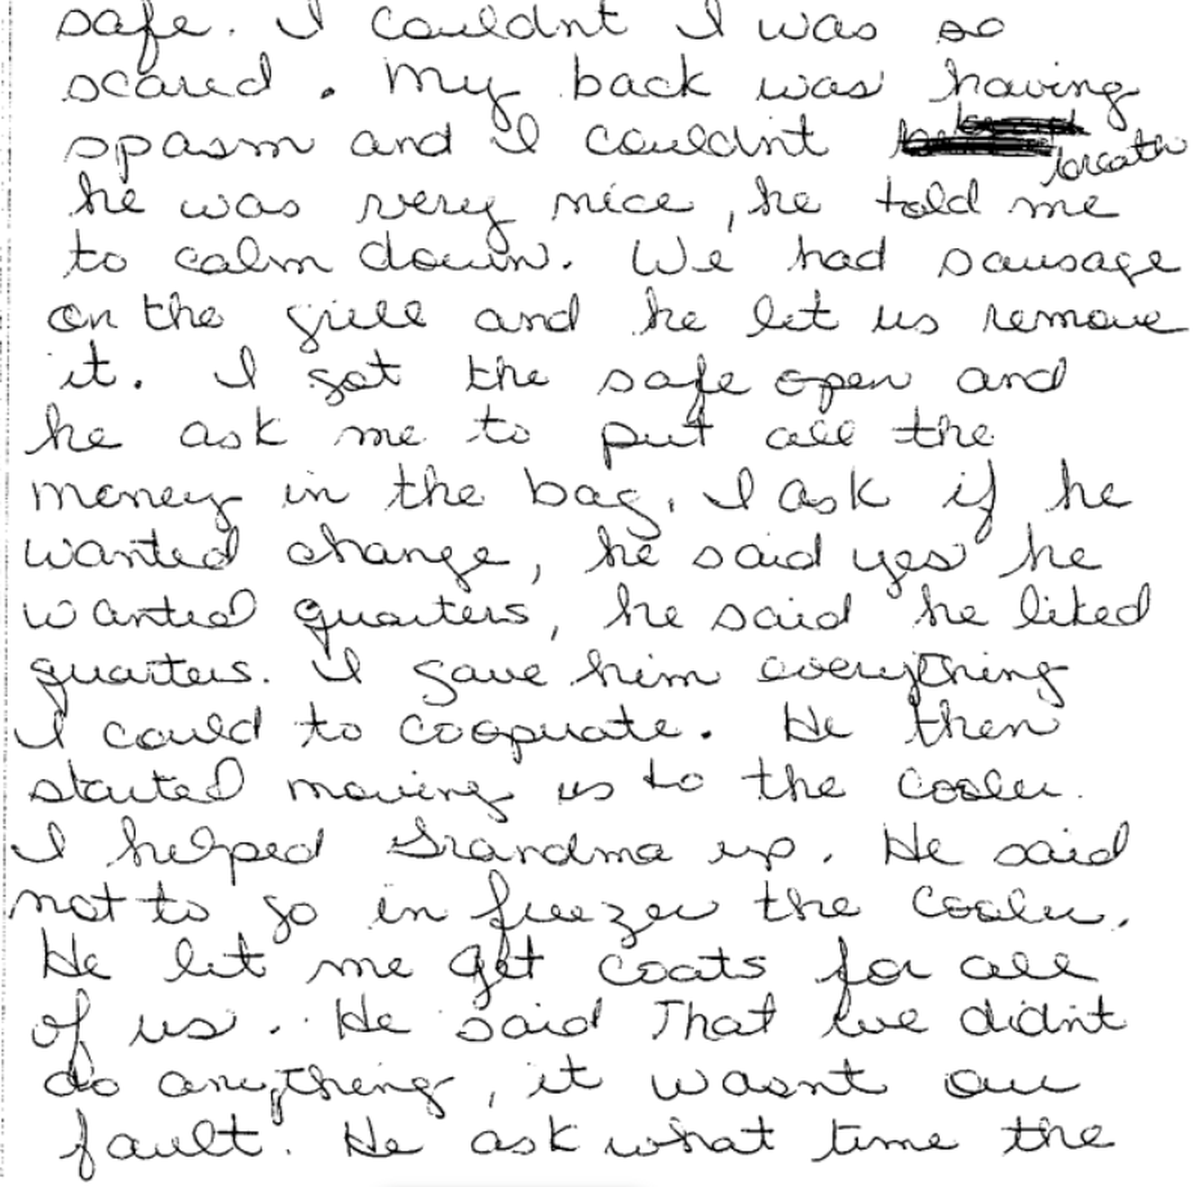 safe. I couldnt I was so
scared. My back was having
spasm and I couldnt breath
he was very nice, he told me
to calm down. We had sausage
on the grill and he let us remove
it. I got the safe open and
he ask me to put all the
money in the bag. I ask if he
wanted change, he said yes he
wanted quarters, he said he liked
quarters. I gave him everything
I could to cooperate. He then
started moving us to the cooler.
I helped Grandma up. He said
not to go in freezer the cooler.
He let me get coats for all
of us. He said That we didnt
do anything, it wasnt our
fault. He ask what time the